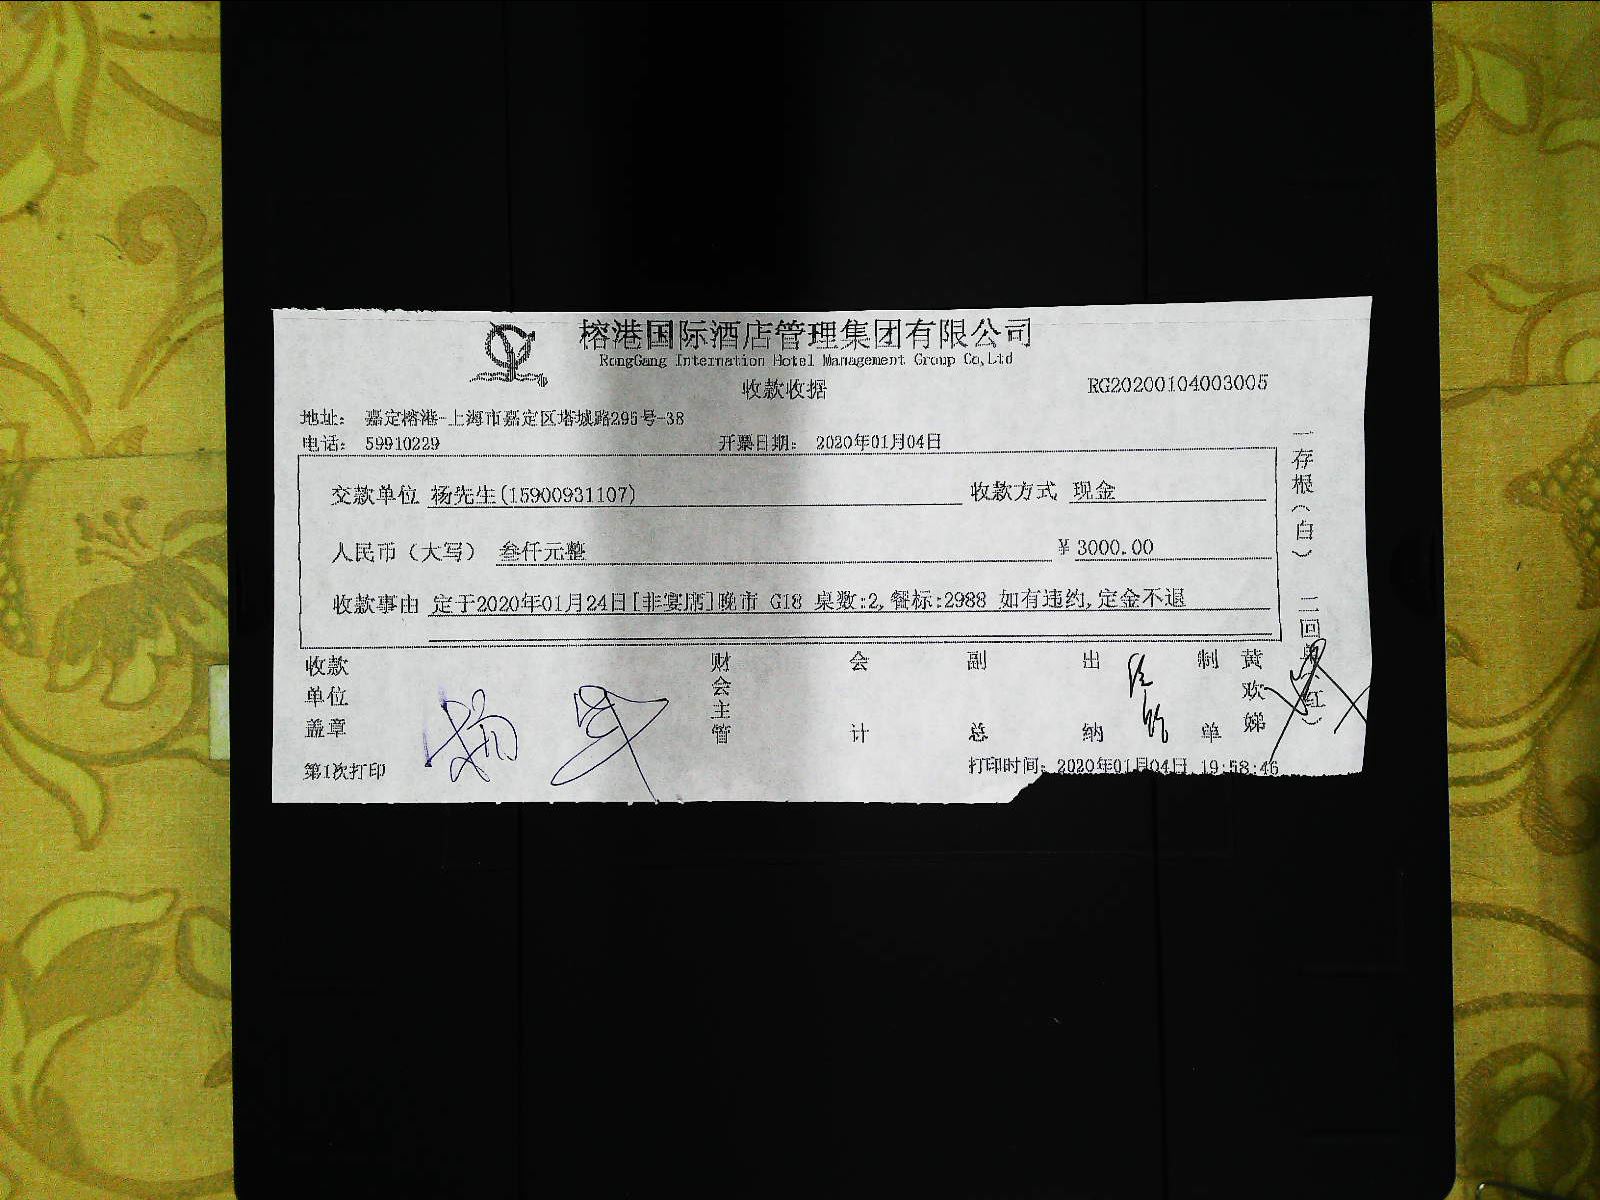 榕港国际酒店管理集团有限公司
RongGang Internation Hotel Management Group Co,Ltd
收款收据
RG20200104003005
地址： 嘉定榕港-上海市嘉定区塔城路295号-38
电话： 59910229
开票日期： 2020年01月04日
交款单位 杨先生(15900931107)
收款方式 现金
人民币（大写） 叁仟元整
¥ 3000.00
收款事由 定于2020年01月24日[非宴席]晚市 G18 桌数:2,餐标:2988 如有违约,定金不退
一存根（白） 二回单（红）
收款单位盖章
财会主管
会计
副总
出纳
制单
黄欢娣
杨
第1次打印
打印时间: 2020年01月04日 19:58:46